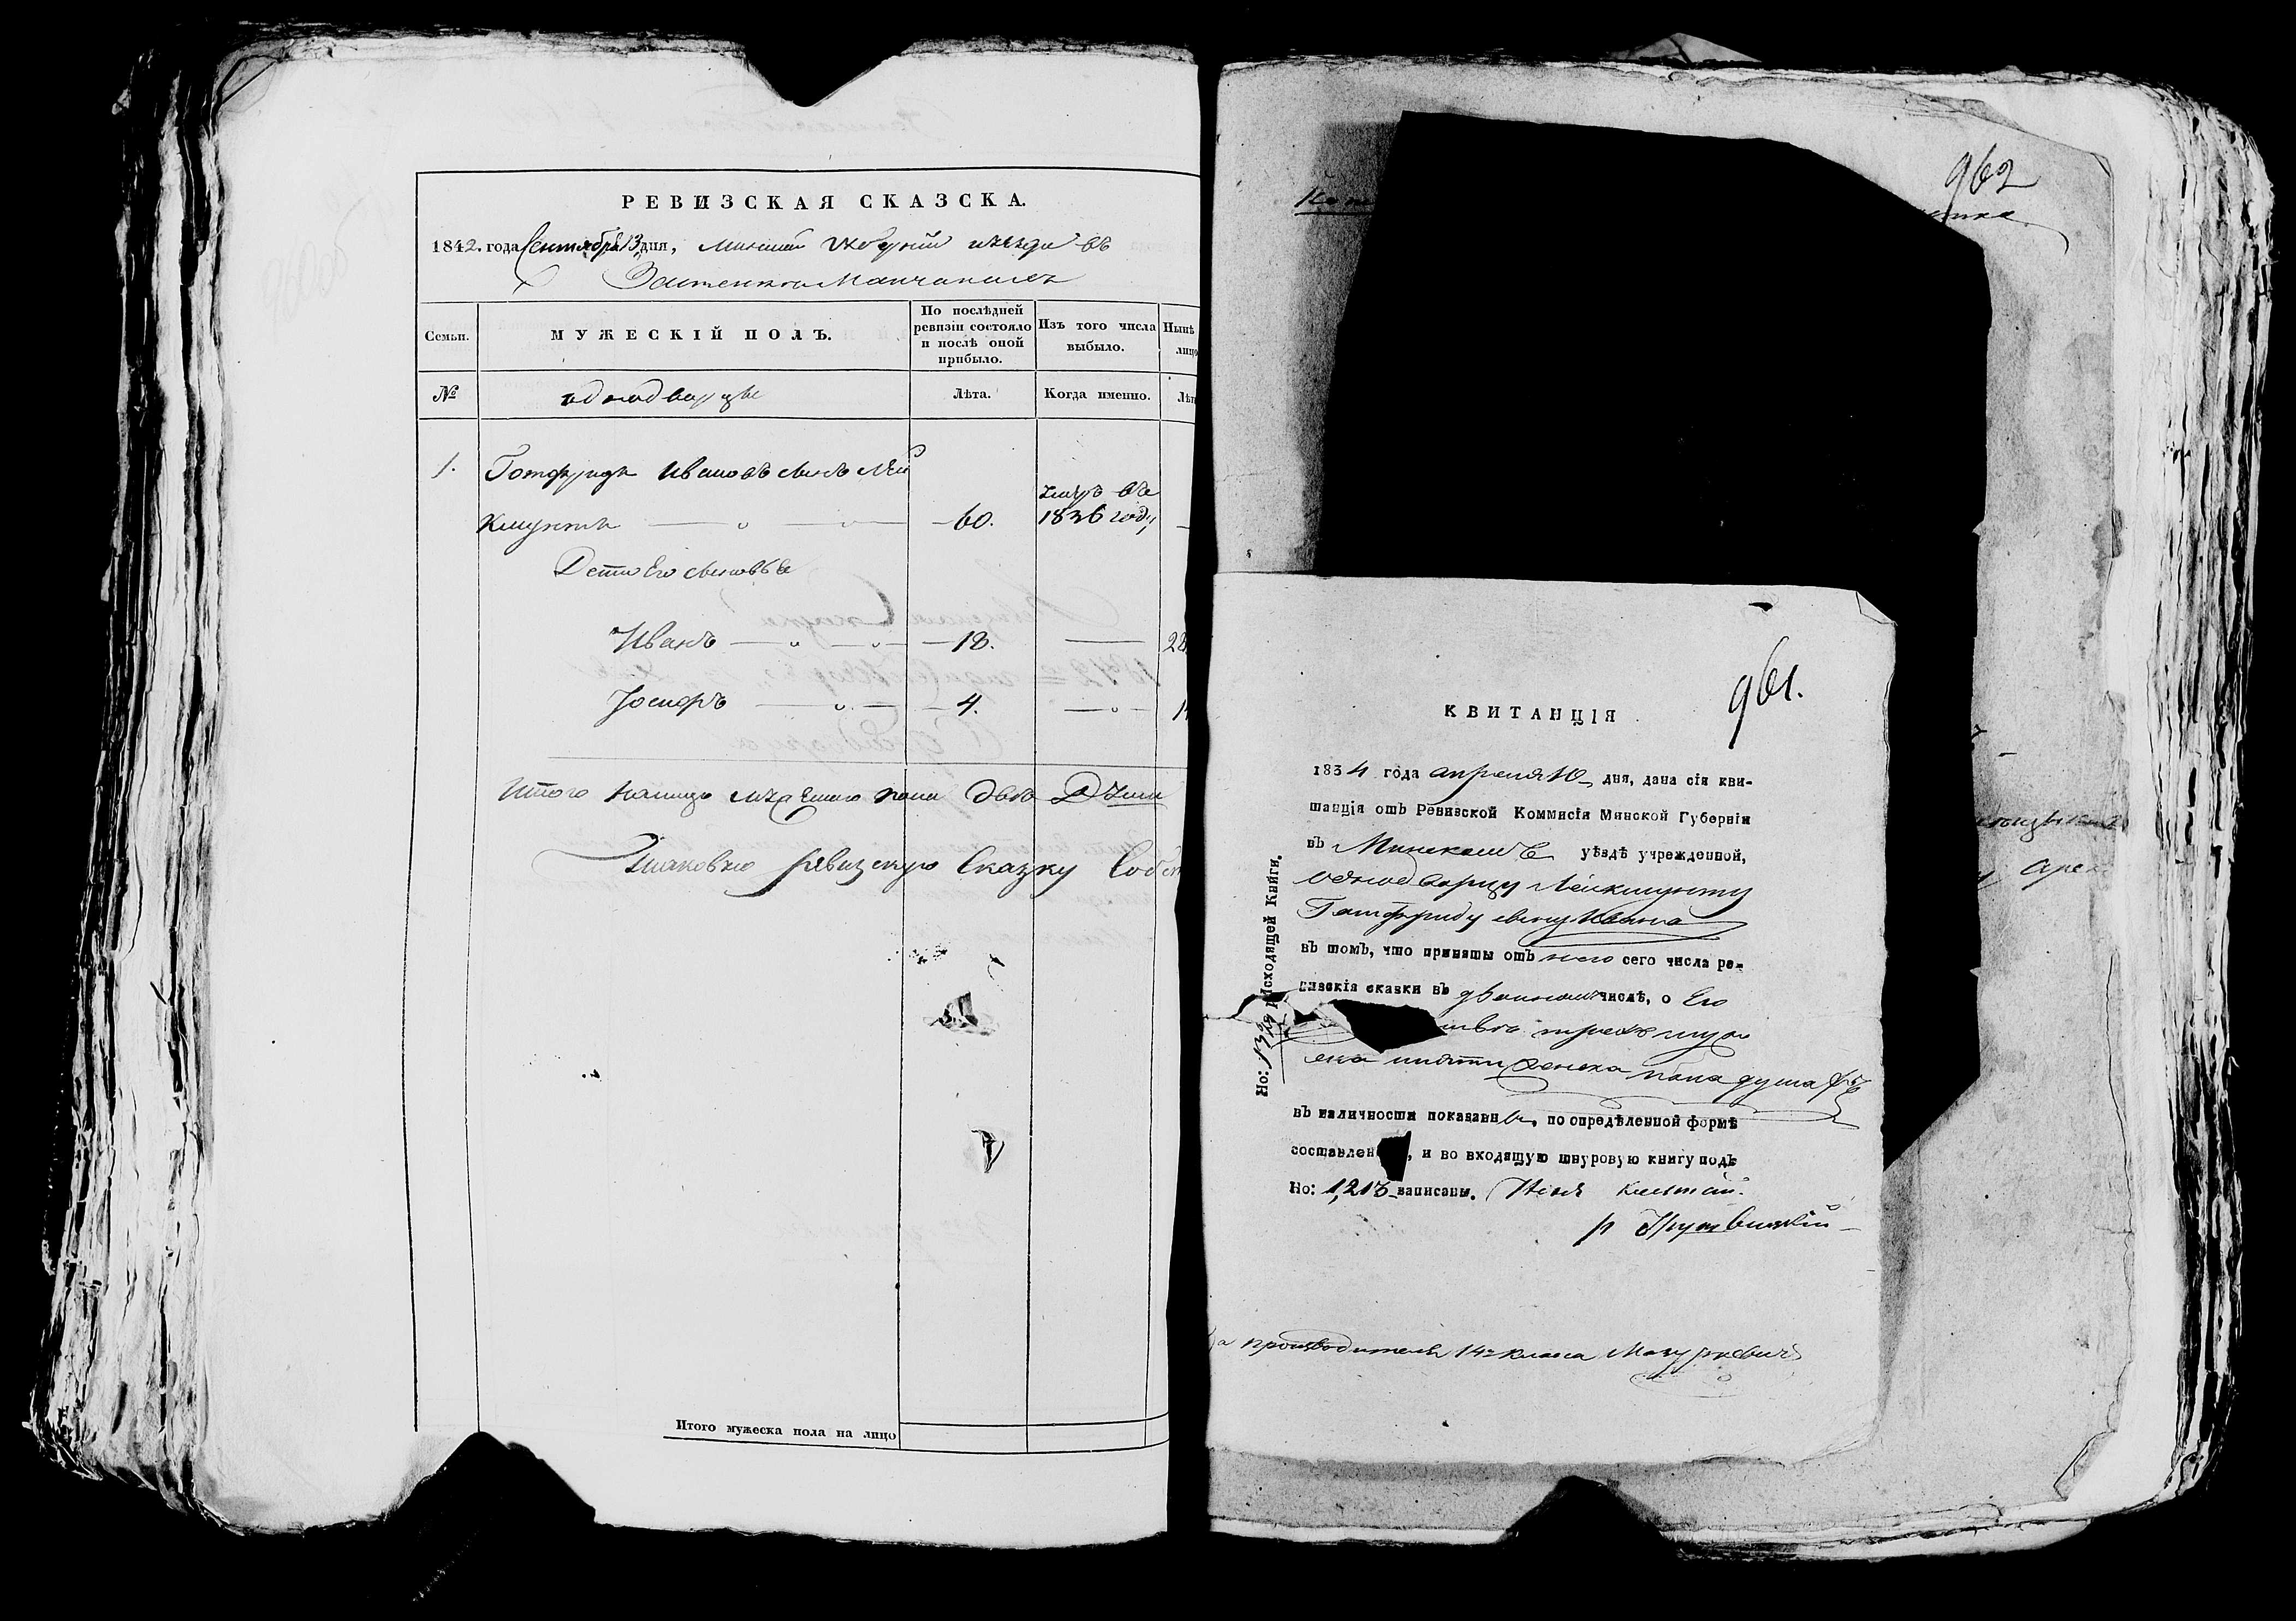 РЕВИЗСКАЯ СКАЗСКА.
1842. года Сентября 13 дня, Минской Губернии уезда въ
Семьи.
МУЖЕСКІЙ ПОЛЪ.
По послѣдней ревизіи состояло и послѣ оной прибыло.
Изъ того числа выбыло.
Нынѣ лицо
№
однодворцы
Лѣта.
Когда именно.
Лѣт
1. Готфридъ Ивановъ сынъ Лей
умеръ въ
Кмунтъ 60. 1836 году
Дети Его сыновья
Иванъ 18. 22
Іосифъ 4. 1
Итого налицо мужеского пола двѣ Души
Таковую ревизскую Сказку
Итого мужеска пола на лицо
962
961.
КВИТАНЦІЯ
1834 года апреля 10 дня, дана сія кви-
танція отъ Ревизской Коммисіи Минской Губерніи
въ Минскомъ уѣздѣ учрежденной,
однодворцу Лейкмунту
Готфриду сыну Ивана
въ томъ, что приняты отъ него сего числа ре-
визскія сказки въ двойномъ числѣ, о Его
трехъ муже
ска пяти женска пола душахъ
въ наличности показанны, по опредѣленной формѣ
составлен , и во входящую шнуровую книгу подъ
Но: 1,213 записаны.
Но: Исходящей Книги.
производителя 14 класса Мазуркевичъ